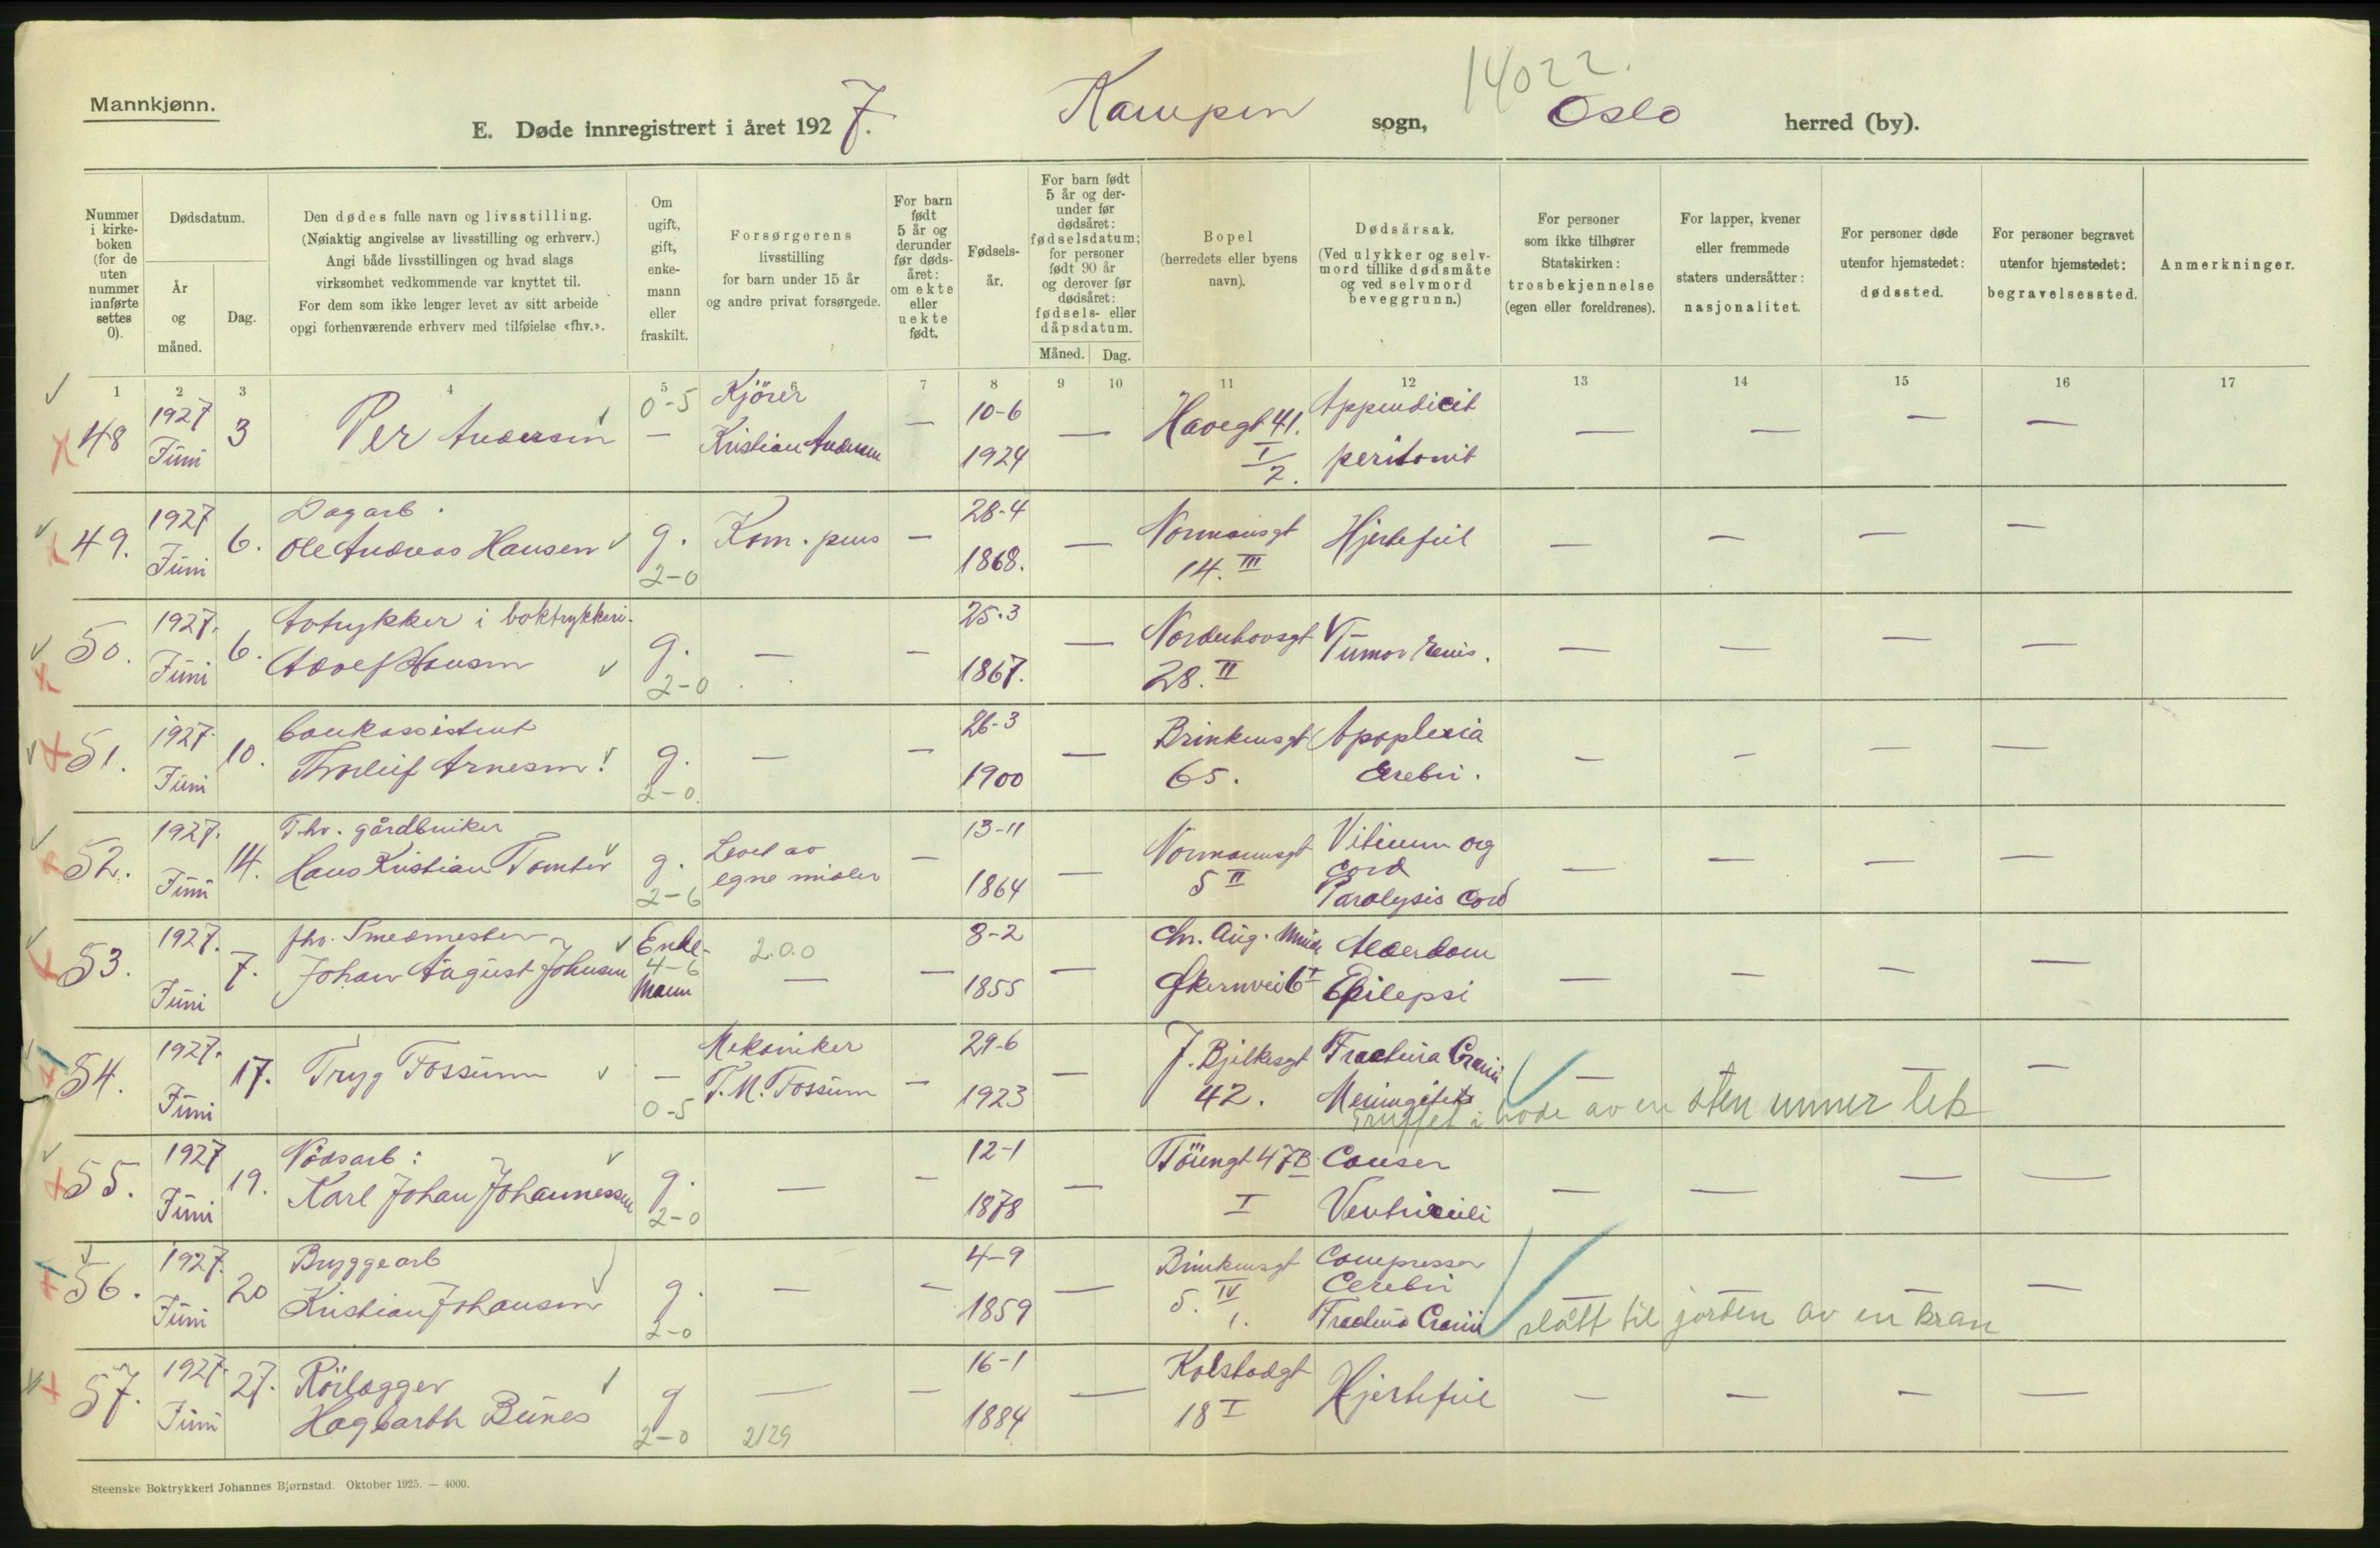 14022.
Mannkjønn.
E. Døde innregistrert i året 1927. Kampen sogn, Oslo herred (by).
Nummer i kirkeboken (for de uten nummer innførte settes 0).
Dødsdatum.
År og måned.
Dag.
Den dødes fulle navn og livsstilling.
(Nøiaktig angivelse av livsstilling og erhverv.)
Angi både livsstillingen og hvad slags
virksomhet vedkommende var knyttet til.
For dem som ikke lenger levet av sitt arbeide
opgi forhenværende erhverv med tilføielse «fhv.».
Om ugift, gift, enkemann eller fraskilt.
Forsørgerens
livsstilling
for barn under 15 år
og andre privat forsørgede.
For barn født 5 år og derunder før dødsåret: om ekte eller uekte født.
Fødselsår.
For barn født 5 år og derunder før dødsåret: fødselsdatum; for personer født 90 år og derover før dødsåret: fødsels- eller dåpsdatum.
Måned. Dag.
Bopel
(herredets eller byens
navn).
Dødsårsak.
(Ved ulykker og selvmord tillike dødsmåte og ved selvmord beveggrunn.)
For personer
som ikke tilhører
Statskirken:
trosbekjennelse
(egen eller foreldrenes).
For lapper, kvener
eller fremmede
staters undersåtter:
nasjonalitet.
For personer døde
utenfor hjemstedet:
dødssted.
For personer begravet
utenfor hjemstedet:
begravelsessted.
Anmerkninger.
1 2 3 4 5 6 7 8 9 10 11 12 13 14 15 16 17
48 1927 Juni 3 Per Andersen 0-5 — Kjörer Kristian Andersen — 10-6 1924 — Havegt 41. I/2. Appendicit peritonit — — — —
49. 1927 Juni 6. Dagarb. Ole Andreas Hansen g. 2-0 Kom. pens — 28-4 1868. — Normansgt 14. III Hjertefeil — — — —
50. 1927. Juni 6. Avtrykker i boktrykkeri. Adolf Hansen g. 2-0 — — 25.3 1867. — Norderhovsgt 28. II Tumor renis. — — — —
51. 1927. Juni 10. bankassistent Thorleif Arnesen g. 2-0 — — 26-3 1900 — Brinkensgt 65. Apoplexia Cerebri. — — — —
52. 1927. Juni 14. Fhv. gårdbruker Hans Kristian Tomter g. 2-6 Levet av egne midler — 13-11 1864 — Normannsgt 5 II Vitium org cord Paralysis Cord — — — —
53. 1927. Juni 7. fhv. Smedmester Johan August Johnsen Enke- 4-6 mann 2.0.0 — — 8-2 1855 — Chr. Aug. Økernvei 6 I Alderdom Epilepsi — — — —
54. 1927. Juni 17. Tryg Fossum — 0-5 Mekaniker T. M. Fossum — 29-6 1923 — J. Bjelkesgt 42. Fractura Cranii Meningitis — — —
truffet i hode av en sten unner lek
55. 1927 Juni 19. Nödsarb: Karl Johan Johannessen g. 2-0 — — 12-1 1878 — Töiengt 47B I Cancer Ventriculi — — — —
56. 1927. Juni 20 Bryggearb Kristian Johansen g. 2-0 — — 4-9 1859 — Brinkensgt 5. IV 1. Compressor Cerebri Fractura Cranii — — — —
slått til jorden av en kran
57. 1927. Juni 27. Rörlegger Hagbarth Bunes g 2-0 — 2129 — 16-1 1884 — Kolstadgt 18 I Hjertefeil — — — —
Steenske Boktrykkeri Johannes Bjørnstad. Oktober 1925. — 4000.